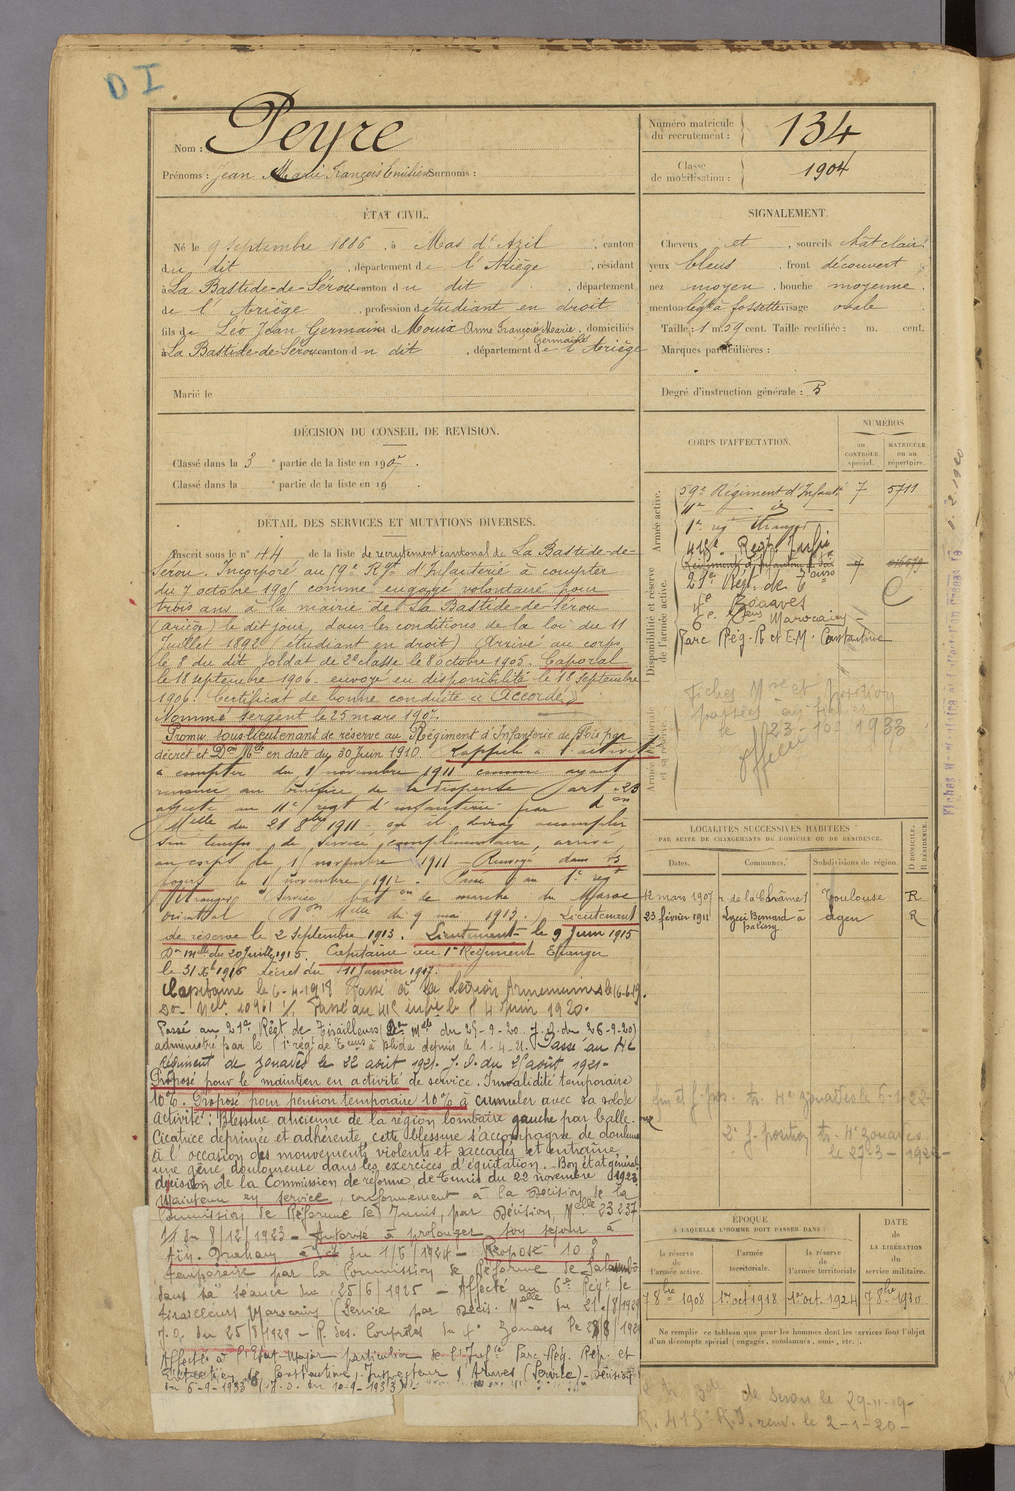 D I
Nom : Peyre
Prénoms : Jean Marie François Emilien Surnoms :
Numéro matricule du recrutement : 134
Classe de mobilisation : 1904
ÉTAT CIVIL.
Né le 9 Septembre 1886, à Mas d'Azil, canton
du dit, département de l'Ariège, résidant
à La Bastide-de-Sérou canton du dit, département
de l'Ariège, profession d'étudiant en droit
fils de Léo Jean Germain et de Mouix Anne Françoise Marie Germaine, domiciliés
à La Bastide-de-Serou canton du dit, département de l'Ariège
Marié le
SIGNALEMENT.
Cheveux et, sourcils chât clair
yeux bleus, front découvert
nez moyen, bouche moyenne
menton à fossette visage ovale
Taille : 1 m. 59 cent. Taille rectifiée : m. cent.
Marques particulières :
Degré d'instruction générale : 5
DÉCISION DU CONSEIL DE REVISION.
Classé dans la 3e partie de la liste en 1907.
Classé dans la e partie de la liste en 19 .
DÉTAIL DES SERVICES ET MUTATIONS DIVERSES.
Inscrit sous le n° 44 de la liste de recrutement cantonal de La Bastide-de-
Sérou. Incorporé au 59e Rgt d'Infanterie à compter
du 7 octobre 1905 comme engagé volontaire pour
trois ans à la mairie de La Bastide-de-Sérou
(Ariège) le dit jour, dans les conditions de la loi du 11
Juillet 1892 (étudiant en droit) Arrivé au corps
le 8 du dit Soldat de 2e classe le 8 octobre 1905. Caporal
le 18 septembre 1906. envoyé en disponibilité le 18 Septembre
1906. Certificat de bonne conduite "Accordé"
Nommé sergent le 25 mars 1907.
Promu sous-lieutenant de réserve au Régiment d'Infanterie de Foix par
décret et Don Mlle en date du 30 Juin 1910. Rappelé à l'activité
à compter du 1 novembre 1911 comme ayant
renoncé au bénéfice de la dispense (art. 23
affecté au 11e regt d'infanterie par don
Mlle du 21 8bre 1911 où il devra accomplir
son temps de service complémentaire, arrivé
au corps le 1 novembre 1911 - Renvoyé dans ses
foyers le 1 novembre 1912 - Passé au 1er regt
Etranger (Service) bat on de marche du Maroc
oriental (Don Mlle du 9 mai 1913. Lieutenant
de réserve le 2 Septembre 1913. Lieutenant le 9 Juin 1915
Don mlle du 20 Juillet 1915. Capitaine au 1er Régiment Etranger
le 31 Xbre 1916 Décret du 11 Janvier 1917.
Capitaine le 6-4-1918 Passé à la Légion Arménienne le 16-6-19.
Don Melle 10961 1/. Passé au 415 infie le 4 Juin 1920.
Passé au 21e Régt de Tirailleurs (Don Melle du 25-9-20 J.O. du 26-9-20)
administré par le 1er régt de Teurs à Blida depuis le 1-4-21. Passé au 4e
Régiment de zouaves le 22 août 1921. J.O. du 25 août 1921-
Proposé pour le maintien en activité de service. Invalidité temporaire
10%. Proposé pour pension temporaire 10% à cumuler avec sa solde
activité: Blessure ancienne de la région lombaire gauche par balle.
Cicatrice déprimée et adhérente, cette blessure s'accompagne de douleurs
à l'occasion des mouvements violents et saccadés et entraîne
une gêne douloureuse dans les exercices d'équitation. Bon état général
décision de la Commission de réforme de Tunis du 22 novembre 1923
Maintenu en service, conformément à la Décision de la
Commission de Réforme de Tunis, par Décision Melle 23237
1/1 du 8/12/1923 - Autorisé à prolonger son séjour à
Aïn Draham du 1/5/1924 - Proposé 10%
temporaire par la Commission de Réforme de Salambô
dans sa séance du 25/6/1925 - Affecté au 6e Régt de
tirailleurs Marocains (Service par Décis. Melle du 21/8/1929
J.O. du 25/8/1929 - R. des Contrôles du 4e Zouaves le 28/8/1929
Affecté à l'Etat-Major particulier de l'Infie Parc Rég. Rép. et
Entretien de Constantine Inspecteur d'Armes (Service) - Décision
du 6-9-1933 (J.O. du 10-9-1933)
CORPS D'AFFECTATION.
NUMÉROS
au CONTRÔLE spécial.
MATRICULE ou au répertoire.
Armée active.
59e Régiment d'Infant. 7 5711
11e id
1er regt étranger
415e Regt Infie
Disponibilité et réserve de l'armée active.
Régiment d'Infanterie de Foix 7
21e Régt de Teurs
4e Zouaves
6e Teurs Marocains
Parc Rég. R et E.M. Constantine
C
Armée territoriale et sa réserve.
Fiches Mle et position
passées au fichier
le 23-10-1933
officier
LOCALITÉS SUCCESSIVES HABITÉES
PAR SUITE DE CHANGEMENTS DE DOMICILE OU DE RÉSIDENCE.
Dates. Communes. Subdivisions de région. D DOMICILE. R RÉSIDENCE.
12 mars 1907 Toulouse R
23 février 1911 Lycée Bernard Palissy à Agen R
2e f. position tr. 4e zouaves
le 27-3-1922-
ÉPOQUE
À LAQUELLE L'HOMME DOIT PASSER DANS :
la réserve de l'armée active.
l'armée territoriale.
la réserve de l'armée territoriale
DATE DE LA LIBÉRATION du service militaire.
7 8bre 1908 1er oct 1918 1er oct. 1924 7 8bre 1930
Ne remplir ce tableau que pour les hommes dont les services font l'objet
d'un décompte spécial (engagés, condamnés, omis, etc.).
de Serou le 29-11-19-
R. 415e R.I. renv. le 2-1-20-